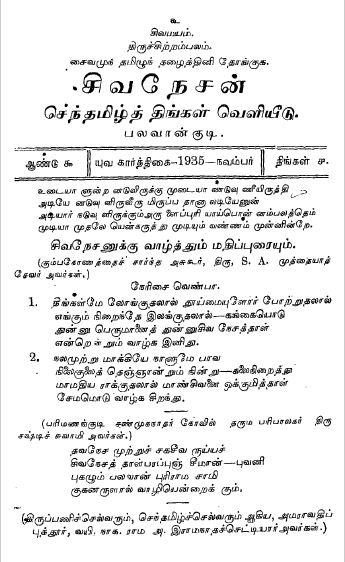 ௳
சிவமயம்.
திருச்சிற்றம்பலம்.
சைவமுந் தமிழுந் தழைத்தினி தோங்குக.
சிவநேசன்
செந்தமிழ்த் திங்கள் வெளியீடு.
பலவான்குடி.
ஆண்டு ௯ யுவ கார்த்திகை—1935—நவம்பர் திங்கள் ௪.
உடையா ளுன்ற னடுவிருக்கு முடையா ணடுவு ணீயிருத்தி
அடியே னடுவு ளிருவீரு மிருப்ப தானா லடியேனுன்
அடியார் நடுவு ளிருக்கும்அரு ளைப்புரி யாய்பொன் னம்பலத்தெம்
முடியா முதலே யென்கருத்து முடியும் வண்ணம் முன்னின்றே.
சிவநேசனுக்கு வாழ்த்தும் மதிப்புரையும்.
(கும்பகோணத்தைச் சார்ந்த அசுகூர், திரு, S. A. முத்தையாத்
தேவர் அவர்கள்.)
நேரிசை வெண்பா.
1. திங்கள்மே லோங்குதலால் தூய்மையுளோர் போற்றுதலால்
எங்கும் நிறைந்தே இலங்குதலால்—கங்கையொடு
துன்னு பெருமானைத் துன்னுசிவ நேசத்தான்
என்றென்றும் வாழ்க இனிது.
2. நலமுற்று மாக்கியே நாளுமே பாவ
நிலைகுலைத் தெஞ்ஞான்றும் நின்று—கலைநிறைத்து
மாமதிய ராக்குதலால் மாண்சிவனை ஒக்குமித்தான்
சேமமொடு வாழ்க சிறந்து.
(பரிமணங்குடி சண்முகநாதர் கோவில் தரும பரிபாலகர் திரு
சஷ்டிச் சுவாமி அவர்கள்.)
தவநேச முற்றுச் சகசீவ ருய்யச்
சிவநேசத் தாள்பரப்புஞ் சீமான்—புவனி
புகழும் பலவான் புரிராம சாமி
குகனருளால் வாழியென்றைக் கும்.
(திருப்பணிச்செல்வரும், செந்தமிழ்ச்செல்வரும் ஆகிய, அமராவதிப்
புத்தூர், வயி. நாக. ராம அ. இராமநாதச்செட்டியார்அவர்கள்.)